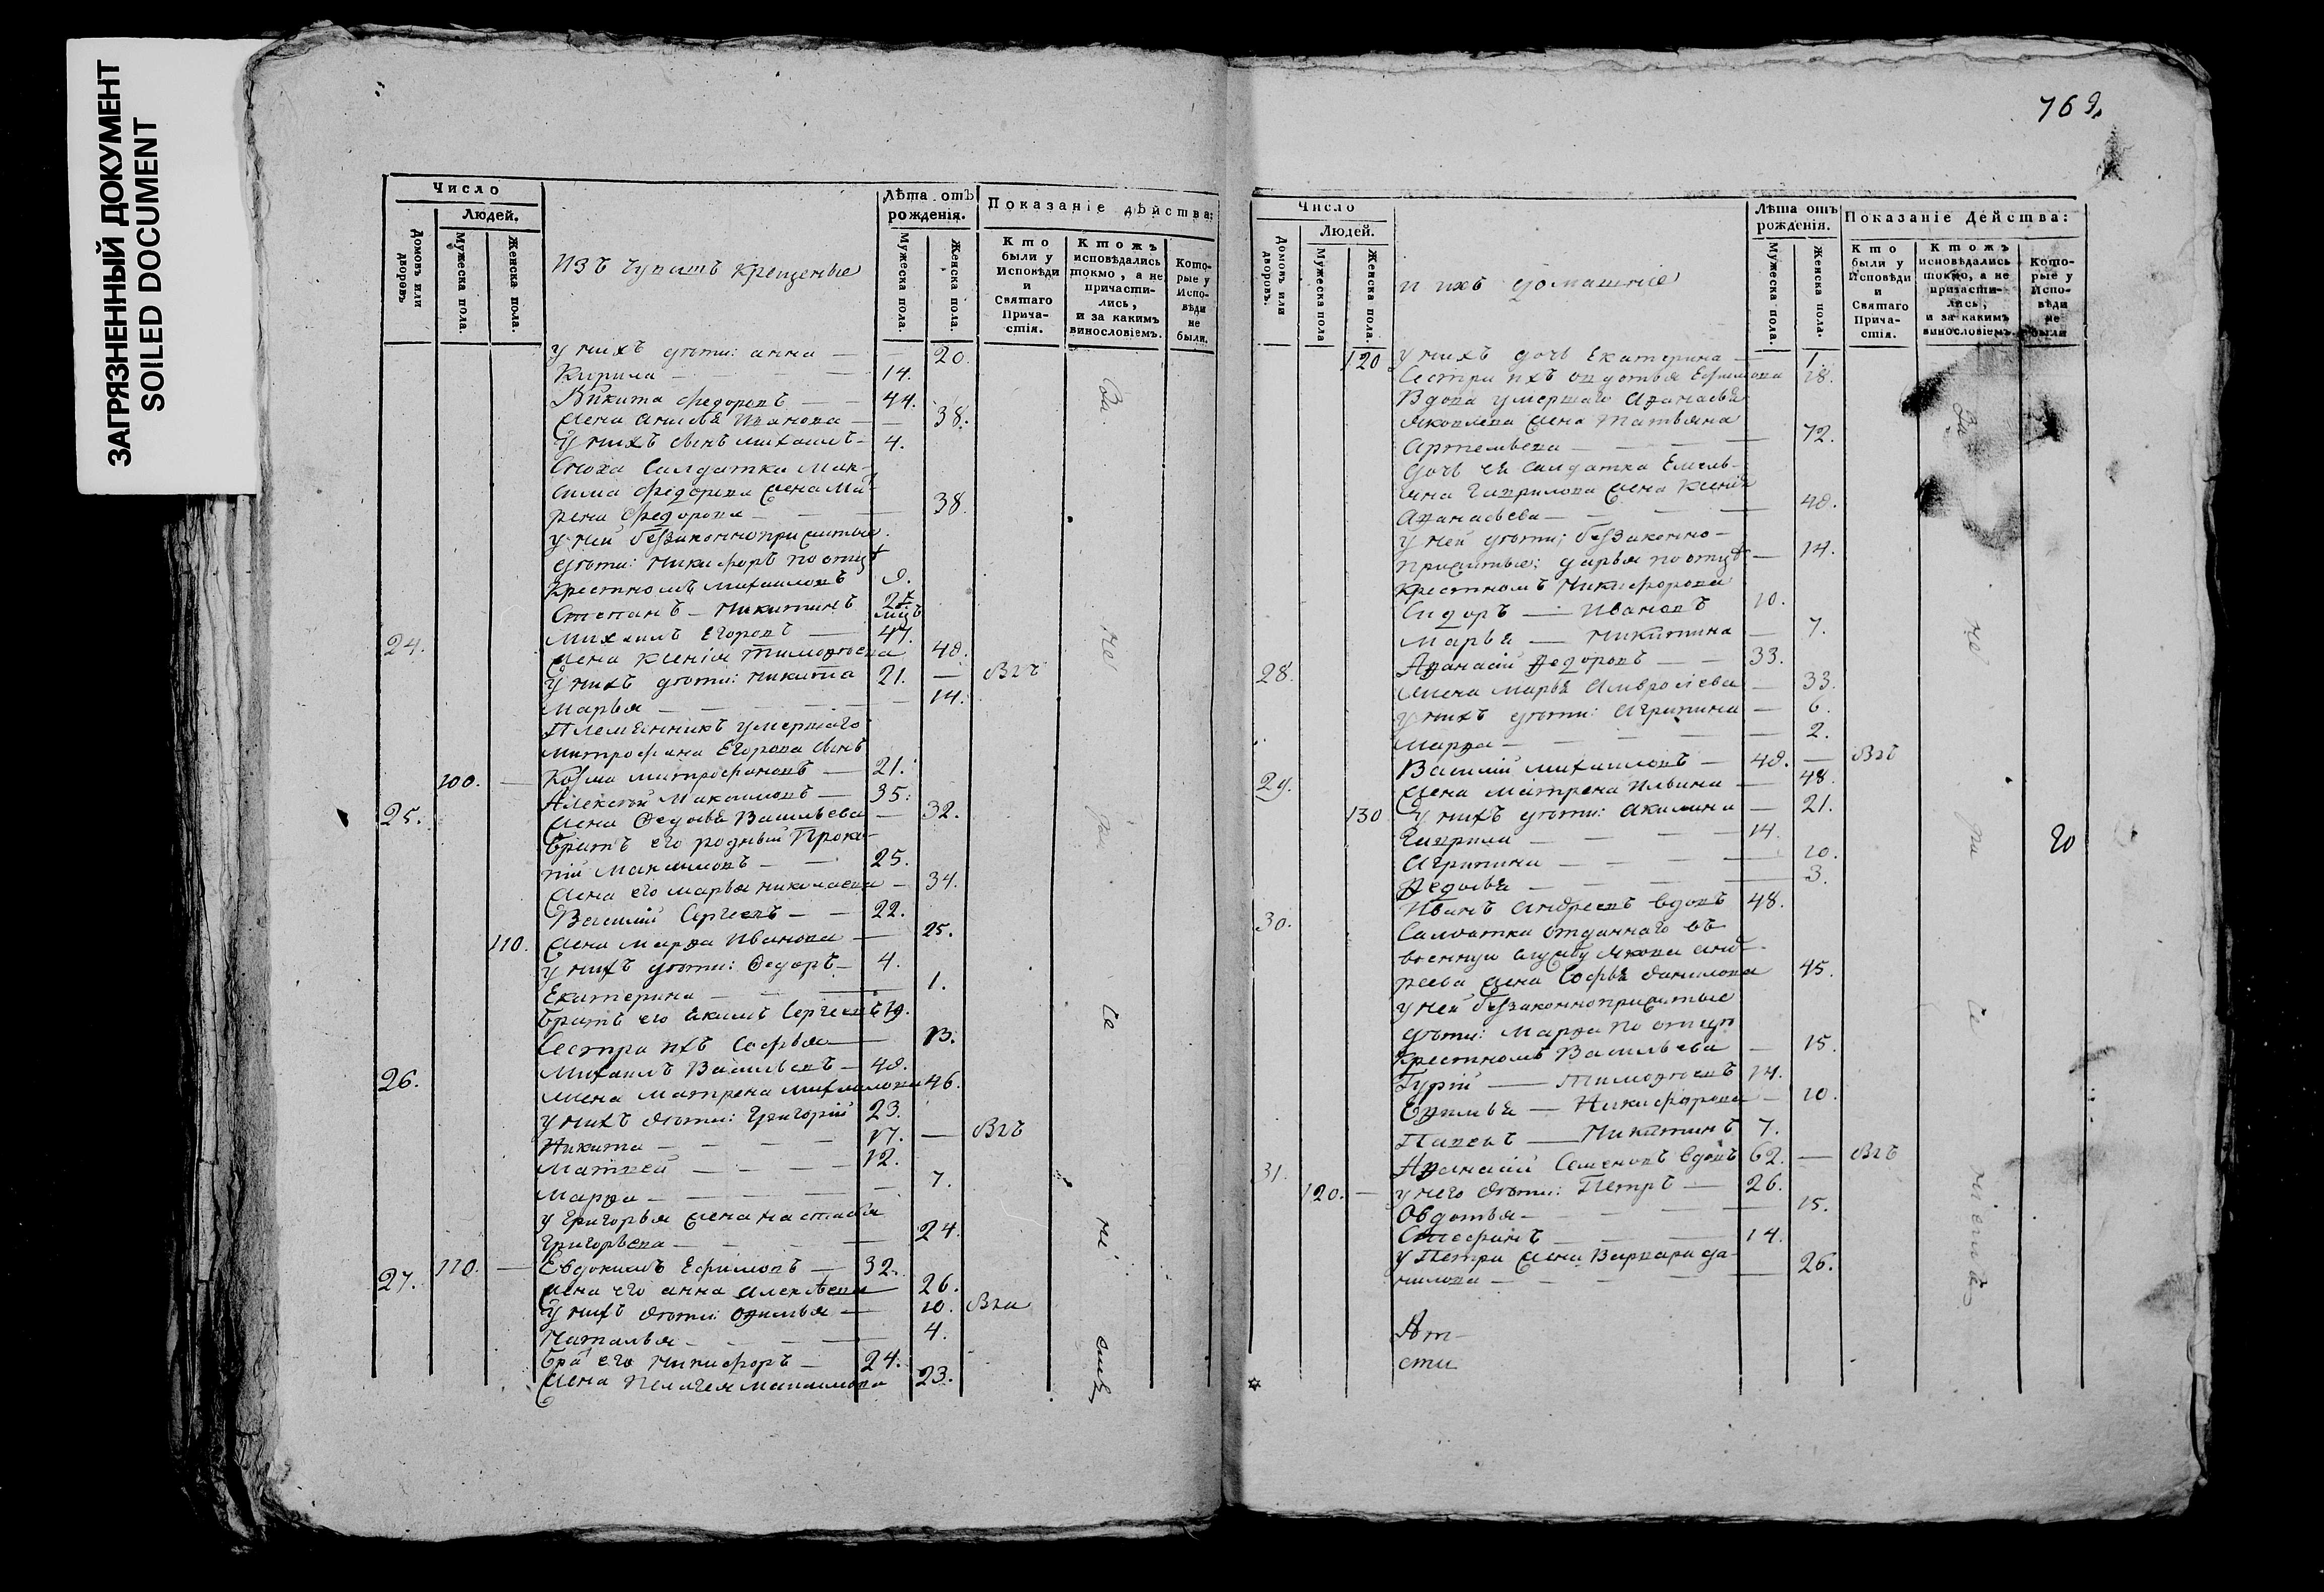 ЗАГРЯЗНЕННЫЙ ДОКУМЕНТ
SOILED DOCUMENT
769
Число
Людей.
Домовъ или дворовъ
Мужеска пола.
Женска пола.
изъ чувашъ крещеные
Лѣта отъ рожденія.
Мужеска пола.
Женска пола.
Показаніе дѣйства:
Кто были у Исповѣди и Святаго Прича-стія.
Ктожъ исповѣдались токмо, а не причасти-лись, и за какимъ винословіемъ.
Кото-рые у Испо-вѣди не были.
у нихъ дѣти: анна 20.
Кирила 14.
Никита федоровъ 44.
жена анисья Иванова 38.
у нихъ сынъ михаилъ 4.
сноха салдатка мак-
сима федорова жена мат-
рена федорова 38.
у ней беззаконноприжитые
дѣти: никифоръ по отцѣ
крестномъ михаиловъ
Степанъ никитинъ
24. михаилъ егоровъ 47.
жена ксенія тимофѣева 40.
у нихъ дѣти: никита 21.
марья 14.
Племянникъ умершаго
митрофана егорова сынъ
100. Козма митрофановъ 21.
25. Алексѣй максимовъ 35.
жена Федосья Васильева 32.
братъ его родный Проко-
пій максимовъ 25.
жена его марья николаева 34.
Василій Сергеевъ 22.
110. жена марѳа Иванова 25.
у нихъ дѣти: Федоръ 4.
Екатерина 1.
братъ его екимъ Сергеевъ 19.
Сестра ихъ софья 13.
26. михаилъ Васильевъ 40.
жена матрена михаилова 46.
у нихъ дѣти: Григорій 23.
Никита 17.
Матвей 12.
марѳа 7.
у Григорья жена настасья
Григорьева 24.
27. 110. Евдокимъ Ефимовъ 32.
жена его анна алексѣева 26.
у нихъ дѣти: офимья 10.
Наталья 4.
бра его никифоръ 24.
жена пелагея максимова 23.
Число
Людей.
Домовъ или дворовъ.
Мужеска пола
Женска пола.
и ихъ домашніе
Лѣта отъ рожденія.
Мужеска пола.
Женска пола.
Показаніе Действа:
Кто были у Исповѣди и Святаго Прича-стія.
Ктожъ исповѣдались токмо, а не причасти-лись, и за какимъ винословіемъ.
Кото-рые у Испо-вѣди не были
120 у нихъ дочь Екатерина 1.
Сестра ихъ овдотья Ефимова 18.
Вдова умершаго Аѳанасья
Яковлева жена Татьяна
артемьева 72.
дочь ея салдатка Емель-
яна Гаврилова жена ксенія
Аѳанасьева 40.
у ней дѣти: беззаконно-
прижитые: дарья по отцѣ 14.
крестномъ никифорова
Сидоръ Ивановъ 10.
марья никитина 7.
28. Аѳанасій Ѳедоровъ 33.
жена марья амвросіева 33.
у нихъ дѣти: агрипина 6.
марѳа 2.
29. Василій михаиловъ 40.
жена матрена Ильина 48.
130 у нихъ дѣти: акилина 21.
Гаврила 14.
агрипина 10.
Ѳедосья 3.
30. Иванъ андреевъ вдовъ 48.
Салдатка отданнаго въ
военную службу якова анд-
реева жена Софья данилова 45.
у ней беззаконноприжитые
дѣти: марѳа по отцу
крестномъ Васильева 15.
Гурій тимоѳѣевъ 14.
Еѳимья Никифорова 10.
Павелъ Никитинъ 7.
31. Аѳанасій Семеновъ вдовъ 62.
120. у него дѣти: Петръ 26.
Овдотья 15.
Стефанъ 14.
у Петра жена Варвара да-
нилова 26.